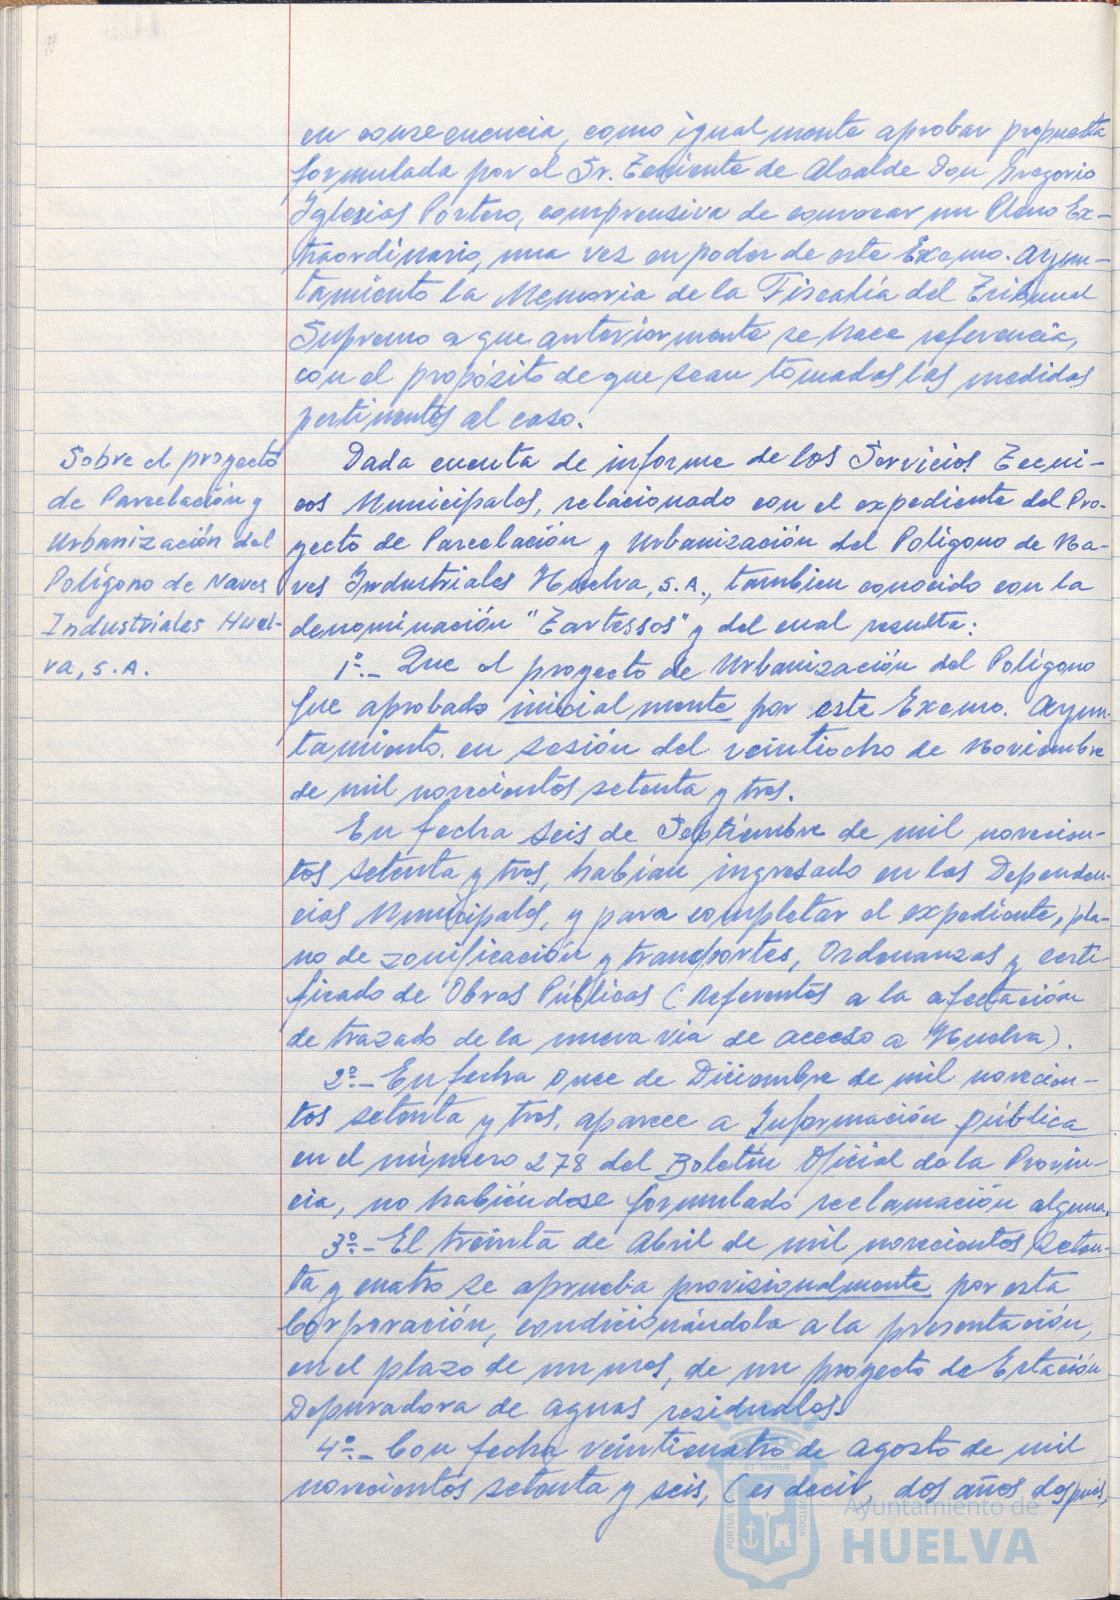 en consecuencia, como igualmente aprobar propuesta
formulada por el Sr. Teniente de Alcalde Don Gregorio
Iglesias Portero, comprensiva de convocar un Pleno Ex-
traordinario, una vez en poder de este Excmo. Ayun-
tamiento la Memoria de la Fiscalía del Tribunal
Supremo a que anteriormente se hace referencia,
con el propósito de que sean tomadas las medidas
pertinentes al caso.
Sobre el proyecto
de Parcelación y
Urbanización del
Polígono de Naves
Industriales Huel-
va, S.A.
Dada cuenta de informe de los Servicios Técni-
cos Municipales, relacionado con el expediente del Pro-
yecto de Parcelación y Urbanización del Polígono de Na-
ves Industriales Huelva, S.A., tambien conocido con la
denominación "Tartessos" y del cual resulta:
1º.- Que el proyecto de Urbanización del Polígono
fue aprobado inicialmente por este Excmo. Ayun-
tamiento en sesión del veintiocho de Noviembre
de mil novecientos setenta y tres.
En fecha seis de Septiembre de mil novecien-
tos setenta y tres, habían ingresado en las Dependen-
cias Municipales, y para completar el expediente, pla-
no de zonificación y transportes, Ordenanzas y certi-
ficado de Obras Públicas (Referentes a la afectación
de trazado de la nueva via de acceso a Huelva).
2º.- En fecha once de Diciembre de mil novecien-
tos setenta y tres, aparece a Información pública
en el número 278 del Boletín Oficial de la Provin-
cia, no habiéndose formulado reclamación alguna.
3º.- El treinta de Abril de mil novecientos seten-
ta y cuatro se aprueba provisionalmente por esta
Corporación, condicionándola a la presentación,
en el plazo de un mes, de un proyecto de Estación
Depuradora de aguas residuales.
4º.- Con fecha veinticuatro de agosto de mil
novecientos setenta y seis, (es decir, dos años después,
Ayuntamiento de
HUELVA